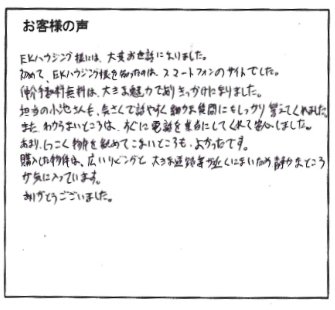 お客様の声
EKハウジング様には、大変お世話になりました。
初めて、EKハウジング様を知ったのは、スマートフォンのサイトでした。
仲介手数料無料は、大きな魅力でありきっかけになりました。
担当の小池さんも、気さくで話やすく細かな質問にもしっかり答えてくれました。
また わからないところは、すぐに電話を
してくれて安心しました。
あまり、しつこく物件を勧めてこないところも、よかったです。
購入した物件は、広いリビングと 大きな道路等が近くにないため静かなところ
が気に入っています。
ありがとうございました。